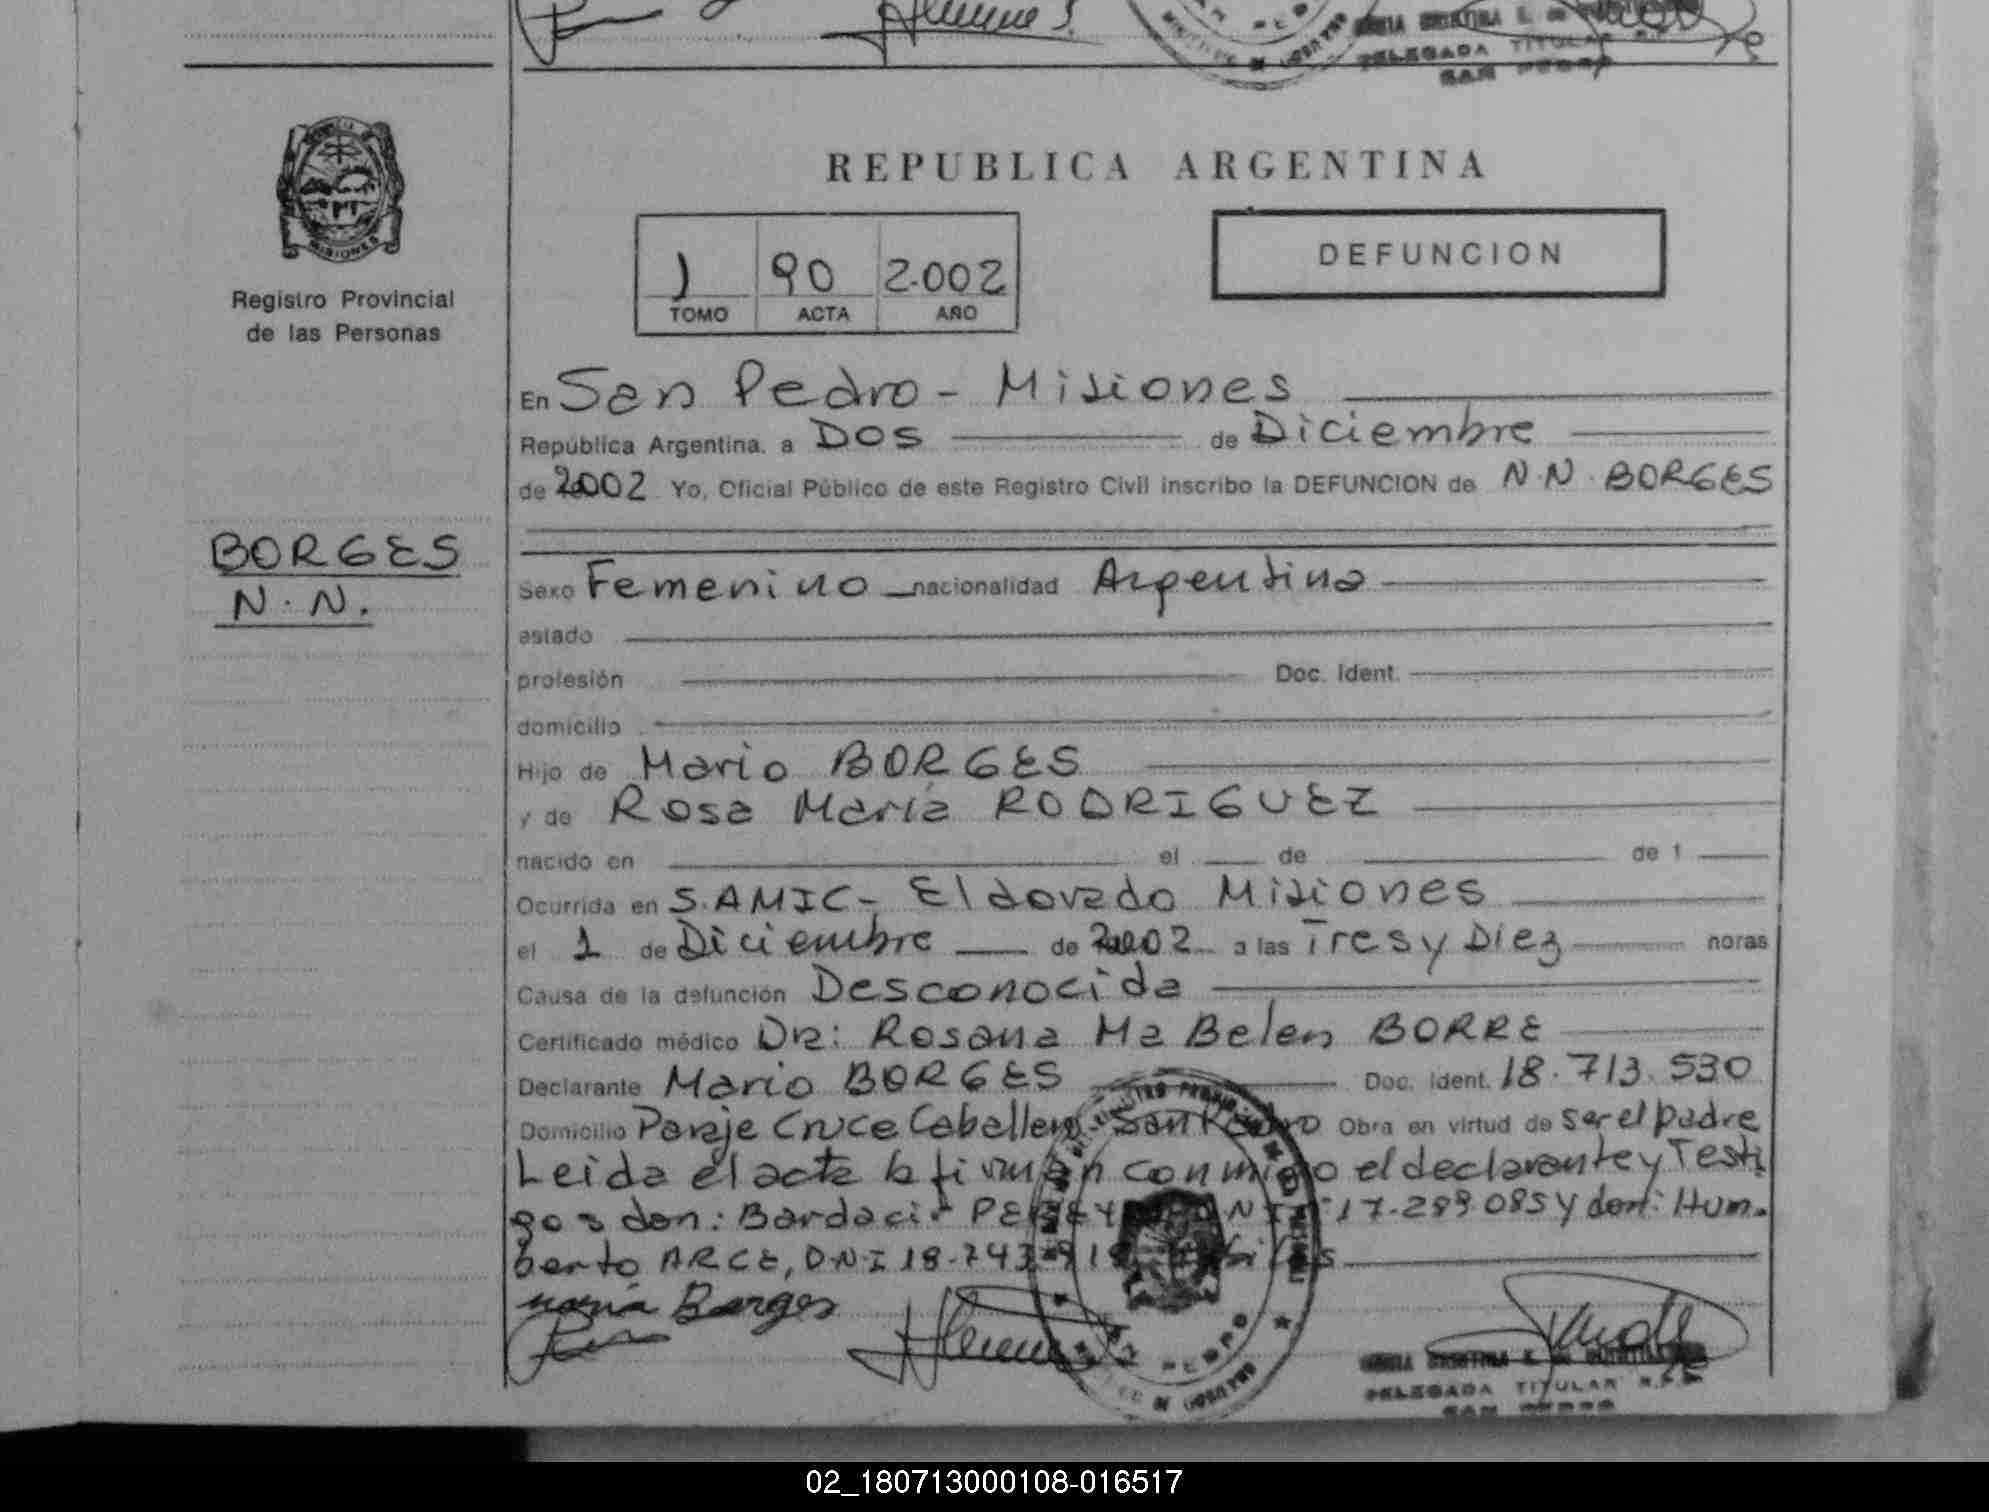 DELEGADA TITULAR R.P.P.
SAN PEDRO
MISIONES
Registro Provincial
de las Personas
REPUBLICA ARGENTINA
1 90 2.002
TOMO ACTA AÑO
DEFUNCION
En San Pedro - Misiones
República Argentina, a DOS de Diciembre
de 2002 Yo, Oficial Público de este Registro Civil inscribo la DEFUNCION de N.N. BORGES
BORGES
N.N.
Sexo Femenino nacionalidad Argentina
estado
profesión Doc. Ident.
domicilio
Hijo de Mario BORGES
y de Rosa María RODRIGUEZ
nacido en el de de 1
Ocurrida en S.AMIC- Eldorado Misiones
el 1 de Diciembre de 2002 a las Tres y Diez horas
Causa de la defunción Desconocida
Certificado médico Dra: Rosana Ma Belen BORRE
Declarante Mario BORGES Doc. Ident. 18.713.530
Domicilio Paraje Cruce Caballero San Pedro Obra en virtud de ser el padre
Leida el acta la firman conmigo el declarante y Testi
gos don: 17.289.085 y don: Hum-
berto ARCE, D.N.I 18.743.
Borges
SAN PEDRO
DELEGADA TITULAR R.P.P.
SAN PEDRO
02_180713000108-016517